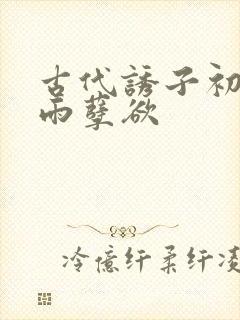 古代誘子初
雨孽欲
冷億纤柔纤凌